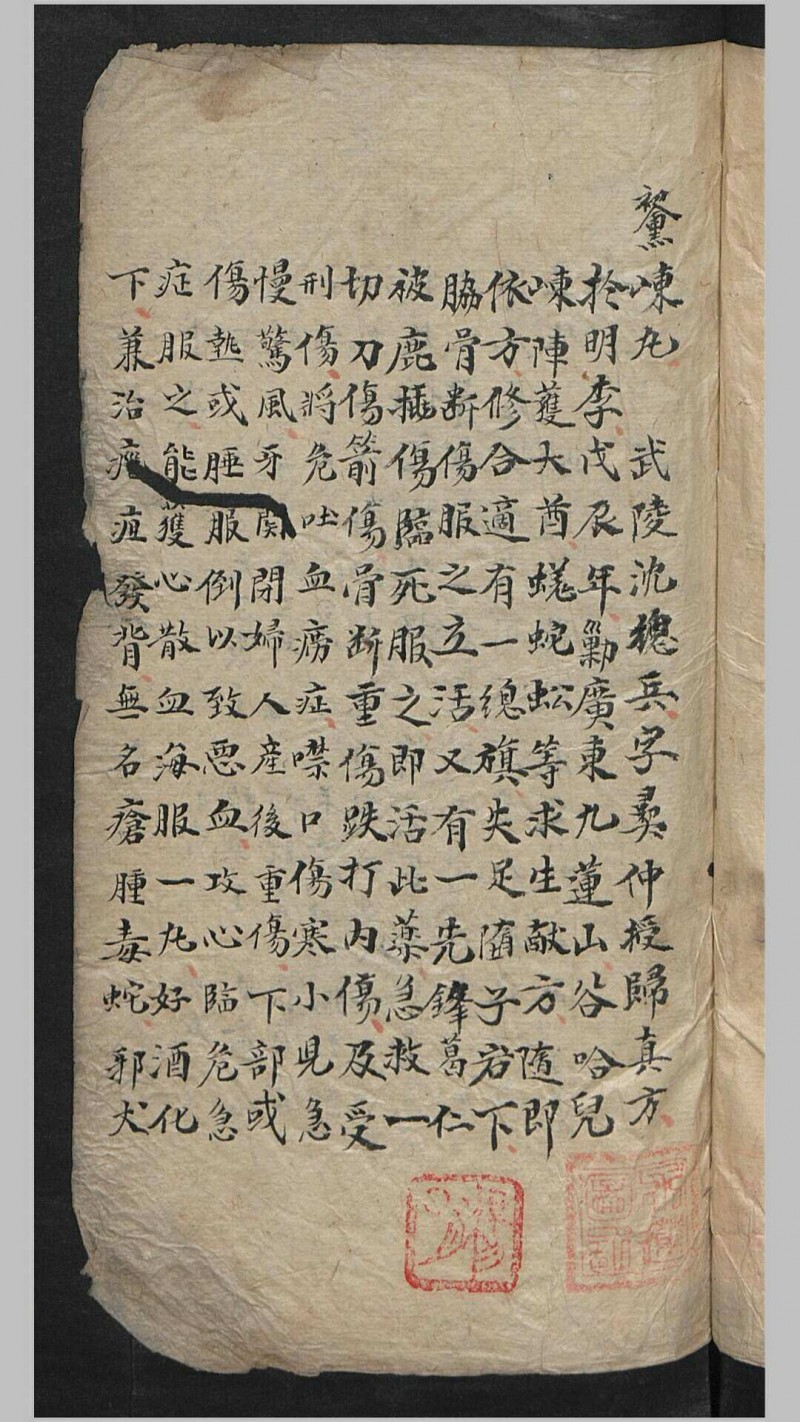 崠丸 武陵沈總兵字彞仲授歸真方
於明季戊辰年勦廣東九蓮山谷哈兒
崠陣獲大酋蜣蛇蚣等求生献方随即
依方修合適有一總旗失足隨子岩下
脇骨断傷服之立活又有一先鋒葛仁
被鹿插傷臨死服之即活此藥急救一
切刀傷箭傷骨断重傷跌打内傷及受
刑傷將危吐血癆症噤口傷寒小児急
慢驚風牙関閉婦人産後重傷下部或
傷或腄服倒以致惡血攻心臨危急
症服之能獲心散血海服一丸好酒化
下兼治疽發背無名瘡腫毒蛇邪犬